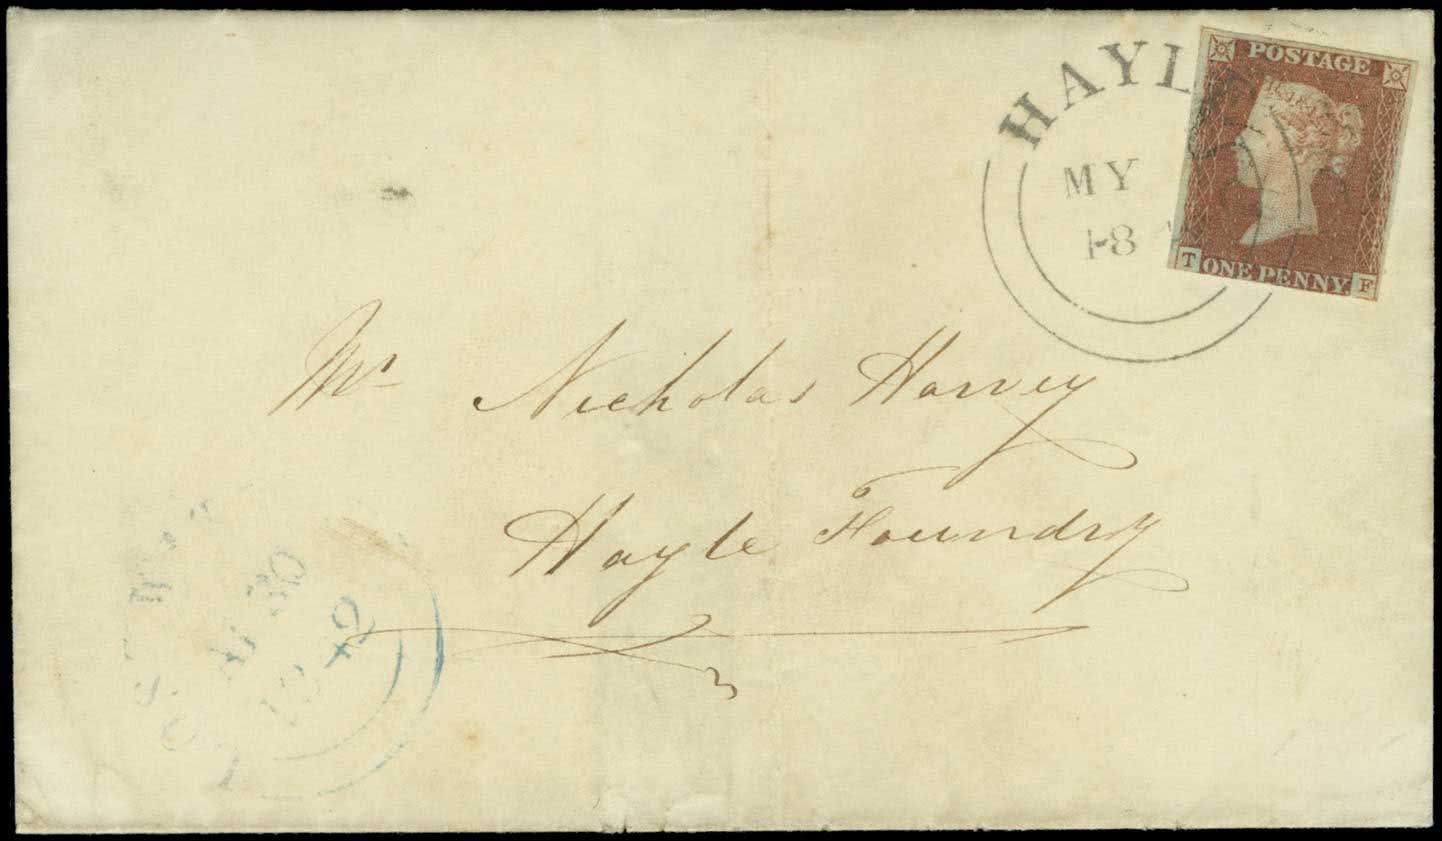 HAYLE
MY
18
POSTAGE
T ONE PENNY. F
Mr Nicholas Harvey
Hayle Foundry